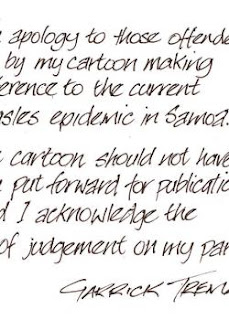 apology to those offende
by my cartoon making
erence to the current
asles epidemic in Samoa.
cartoon should not have
put forward for publicatio
d I acknowledge the
of judgement on my par
GARRICK TREM